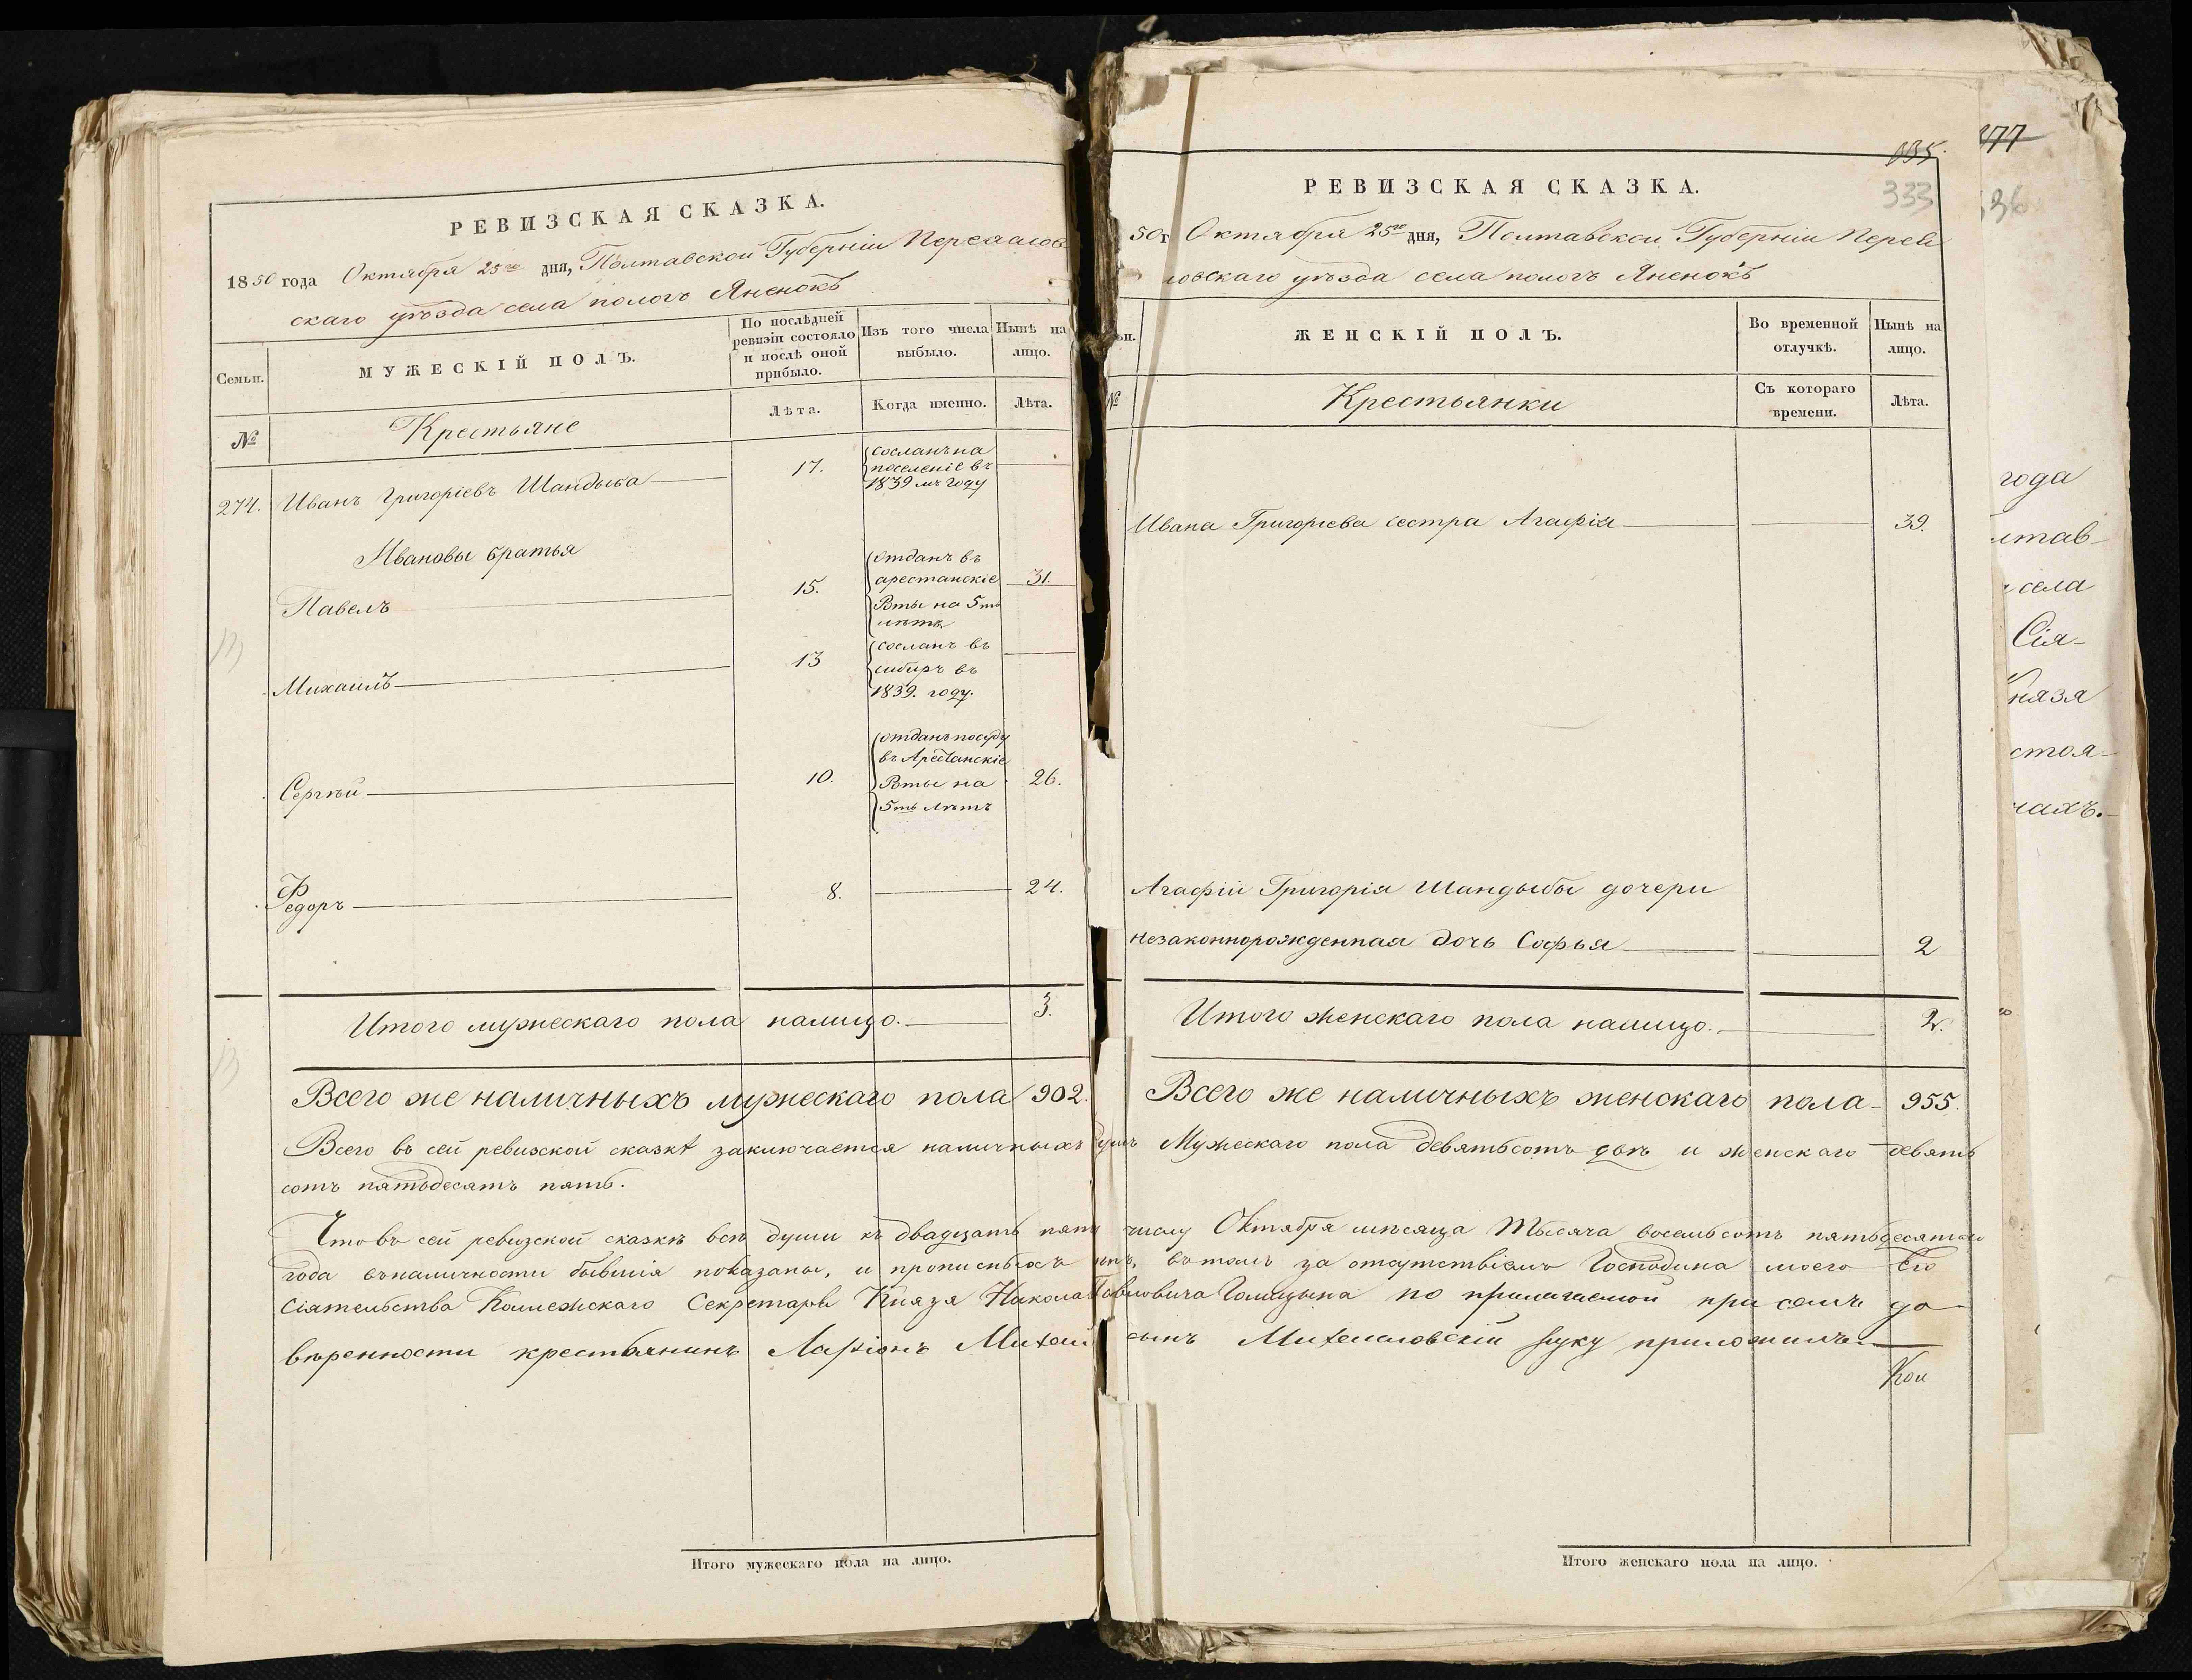 РЕВИЗСКАЯ СКАЗКА.
1850 года Октября 25го дня, Полтавской Губерніи Переяслов
скаго уѣзда села пологъ Яненокъ
Семьи.
МУЖЕСКІЙ ПОЛЪ.
По послѣдней ревизіи состояло и послѣ оной прибыло.
Изъ того числа выбыло.
Нынѣ на лицо.
№
Крестьяне
Лѣта.
Когда именно.
Лѣта.
274. Иванъ Григоріевъ Шандыба 17. сосланъ на
поселеніе въ
1839мъ году
Ивановы братья
Павелъ 15. отданъ въ
арестанскіе 31.
Рты на 5ть
лѣтъ
Михаилъ 13 сосланъ въ
сибирь въ
1839. году.
Сергѣй 10. отданъ посуду
въ Арестанскіе
Рты на 26.
5ть лѣтъ
Федоръ 8. 24.
Итого мужескаго пола налицо. 3.
Всего же наличныхъ мужескаго пола 902.
РЕВИЗСКАЯ СКАЗКА.
135.
333
50г Октября 25го дня, Полтавской Губерніи Перея
ловскаго уѣзда села пологъ Яненокъ
ьи.
ЖЕНСКІЙ ПОЛЪ.
Во временной отлучкѣ.
Нынѣ на лицо.
№
Крестьянки
Съ котораго времени.
Лѣта.
Ивана Григорьева сестра Агафія 39.
Агафіи Григорія Шандыбы дочери
незаконнорожденная дочь Софья 2
Итого женскаго пола налицо. 2.
Всего же наличныхъ женскаго пола 955.
Всего въ сей ревизской сказкѣ заключается наличныхъ душъ Мужескаго пола девятьсотъ двѣ и женскаго девять
сотъ пятьдесятъ пять.
Что въ сей ревизской сказкѣ всѣ души къ двадцать пято числу Октября мѣсяца Тысяча восемьсотъ пятьдесятаго
года въ наличности бывшія показаны, и прописныхъ нѣтъ, въ томъ за отсутствіемъ Господина моего Его
Сіятельства Коллежскаго Секретаря Князя Никола Павловича Голицына по прилагаемой при семъ до
вѣренности крестьянинъ Ларіонъ Михай сынъ Михайловскій руку приложилъ.
Кол
Итого мужескаго пола на лицо.
Итого женскаго пола на лицо.
177
336
года
лтав
села
Сія-
нязя
стоя-
чахъ.